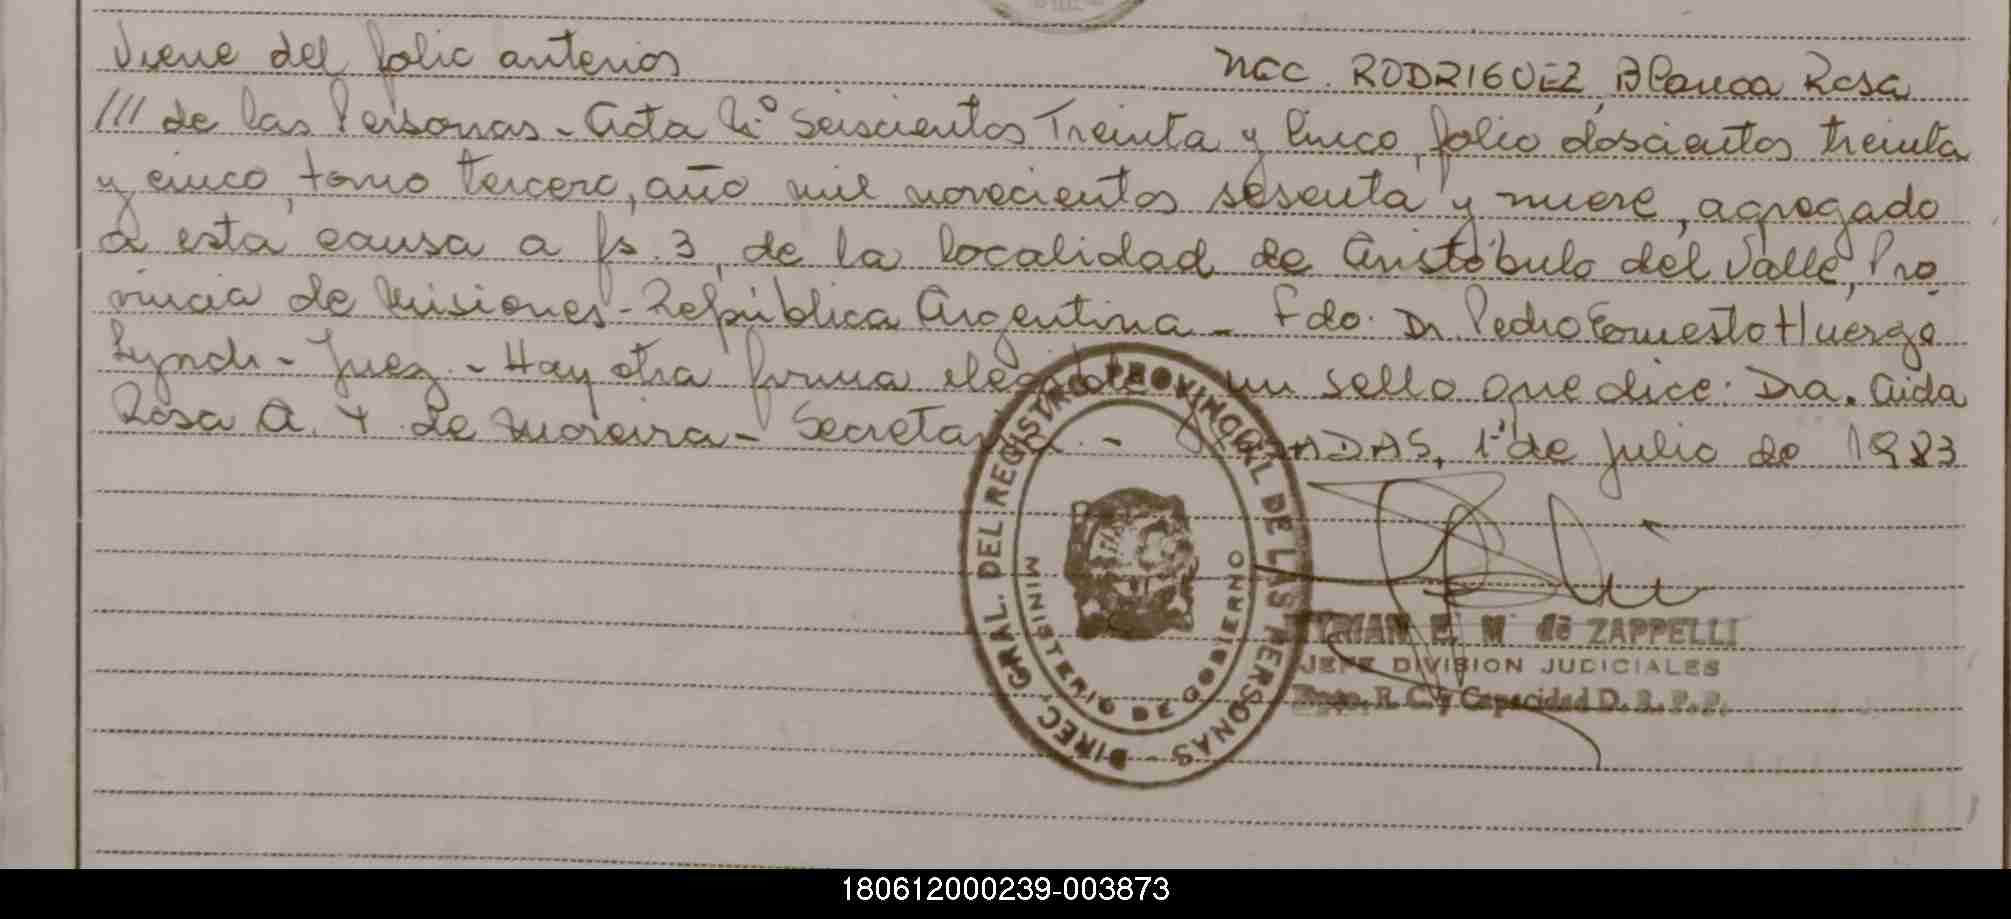 Viene del folio anterior
Nac. RODRIGUEZ, Blanca Rosa
/// de las Personas - Acta N° Seiscientos Treinta y Cinco, folio doscientos treinta
y cinco, tomo tercero, año mil novecientos sesenta y nueve, agregado
a esta causa a fs. 3, de la localidad de Aristóbulo del Valle, Pro
vincia de Misiones - República Argentina - Fdo. Dr Pedro Ernesto Huergo
Lynch - Juez. - Hay otra firma ilegible un sello que dice: Dra. Aida
Rosa A. Y. de Moreira - Secretaria. - POSADAS, 1° de Julio de 1983
DIREC. GRAL. DEL REGISTRO PROVINCIAL DE LAS PERSONAS -
MINISTERIO DE GOBIERNO
E. M de ZAPPELLI
JEFE DIVISION JUDICIALES
R. C. y Capacidad D. R. P. P.
180612000239-003873